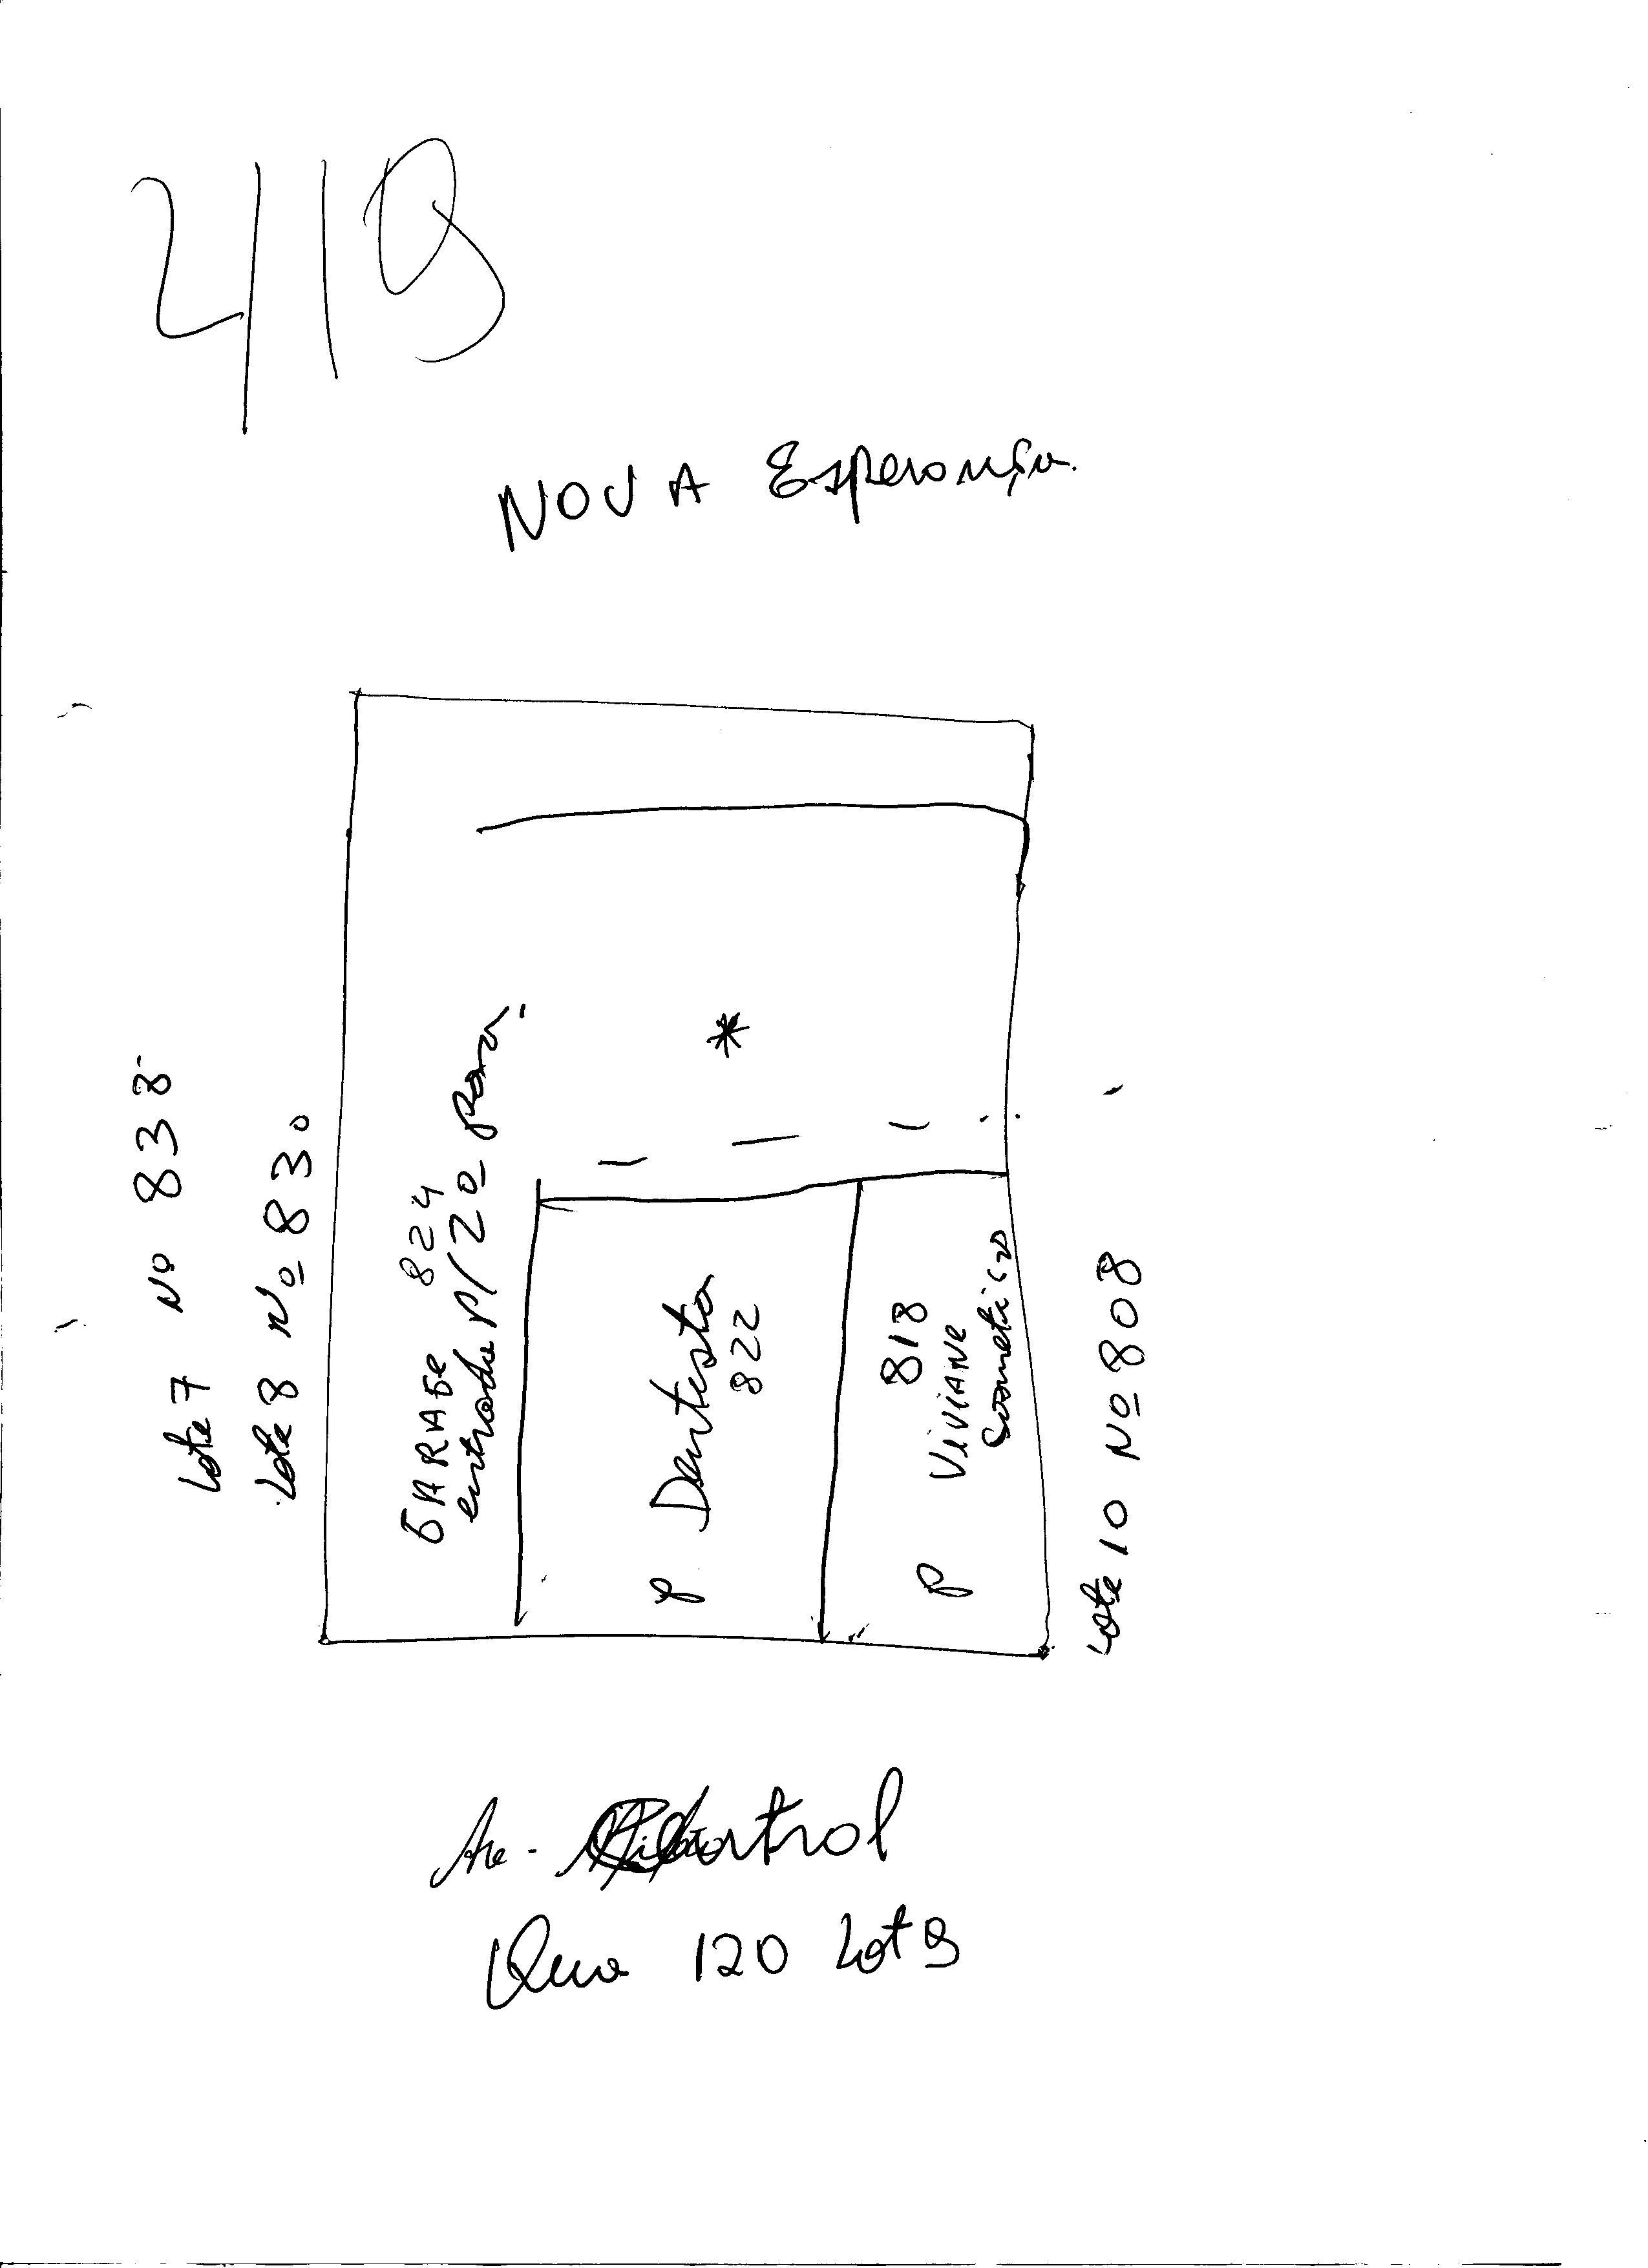 419
NOVA Esperança.
Lote 7 Nº 838
Lote 8 Nº 830
GARAGE 824
entrada P/ 2º Pav.
*
P Dentista
822
818
P Viviane
Cosmetico
Lote 10 Nº 808
Av.
120 Lot 9